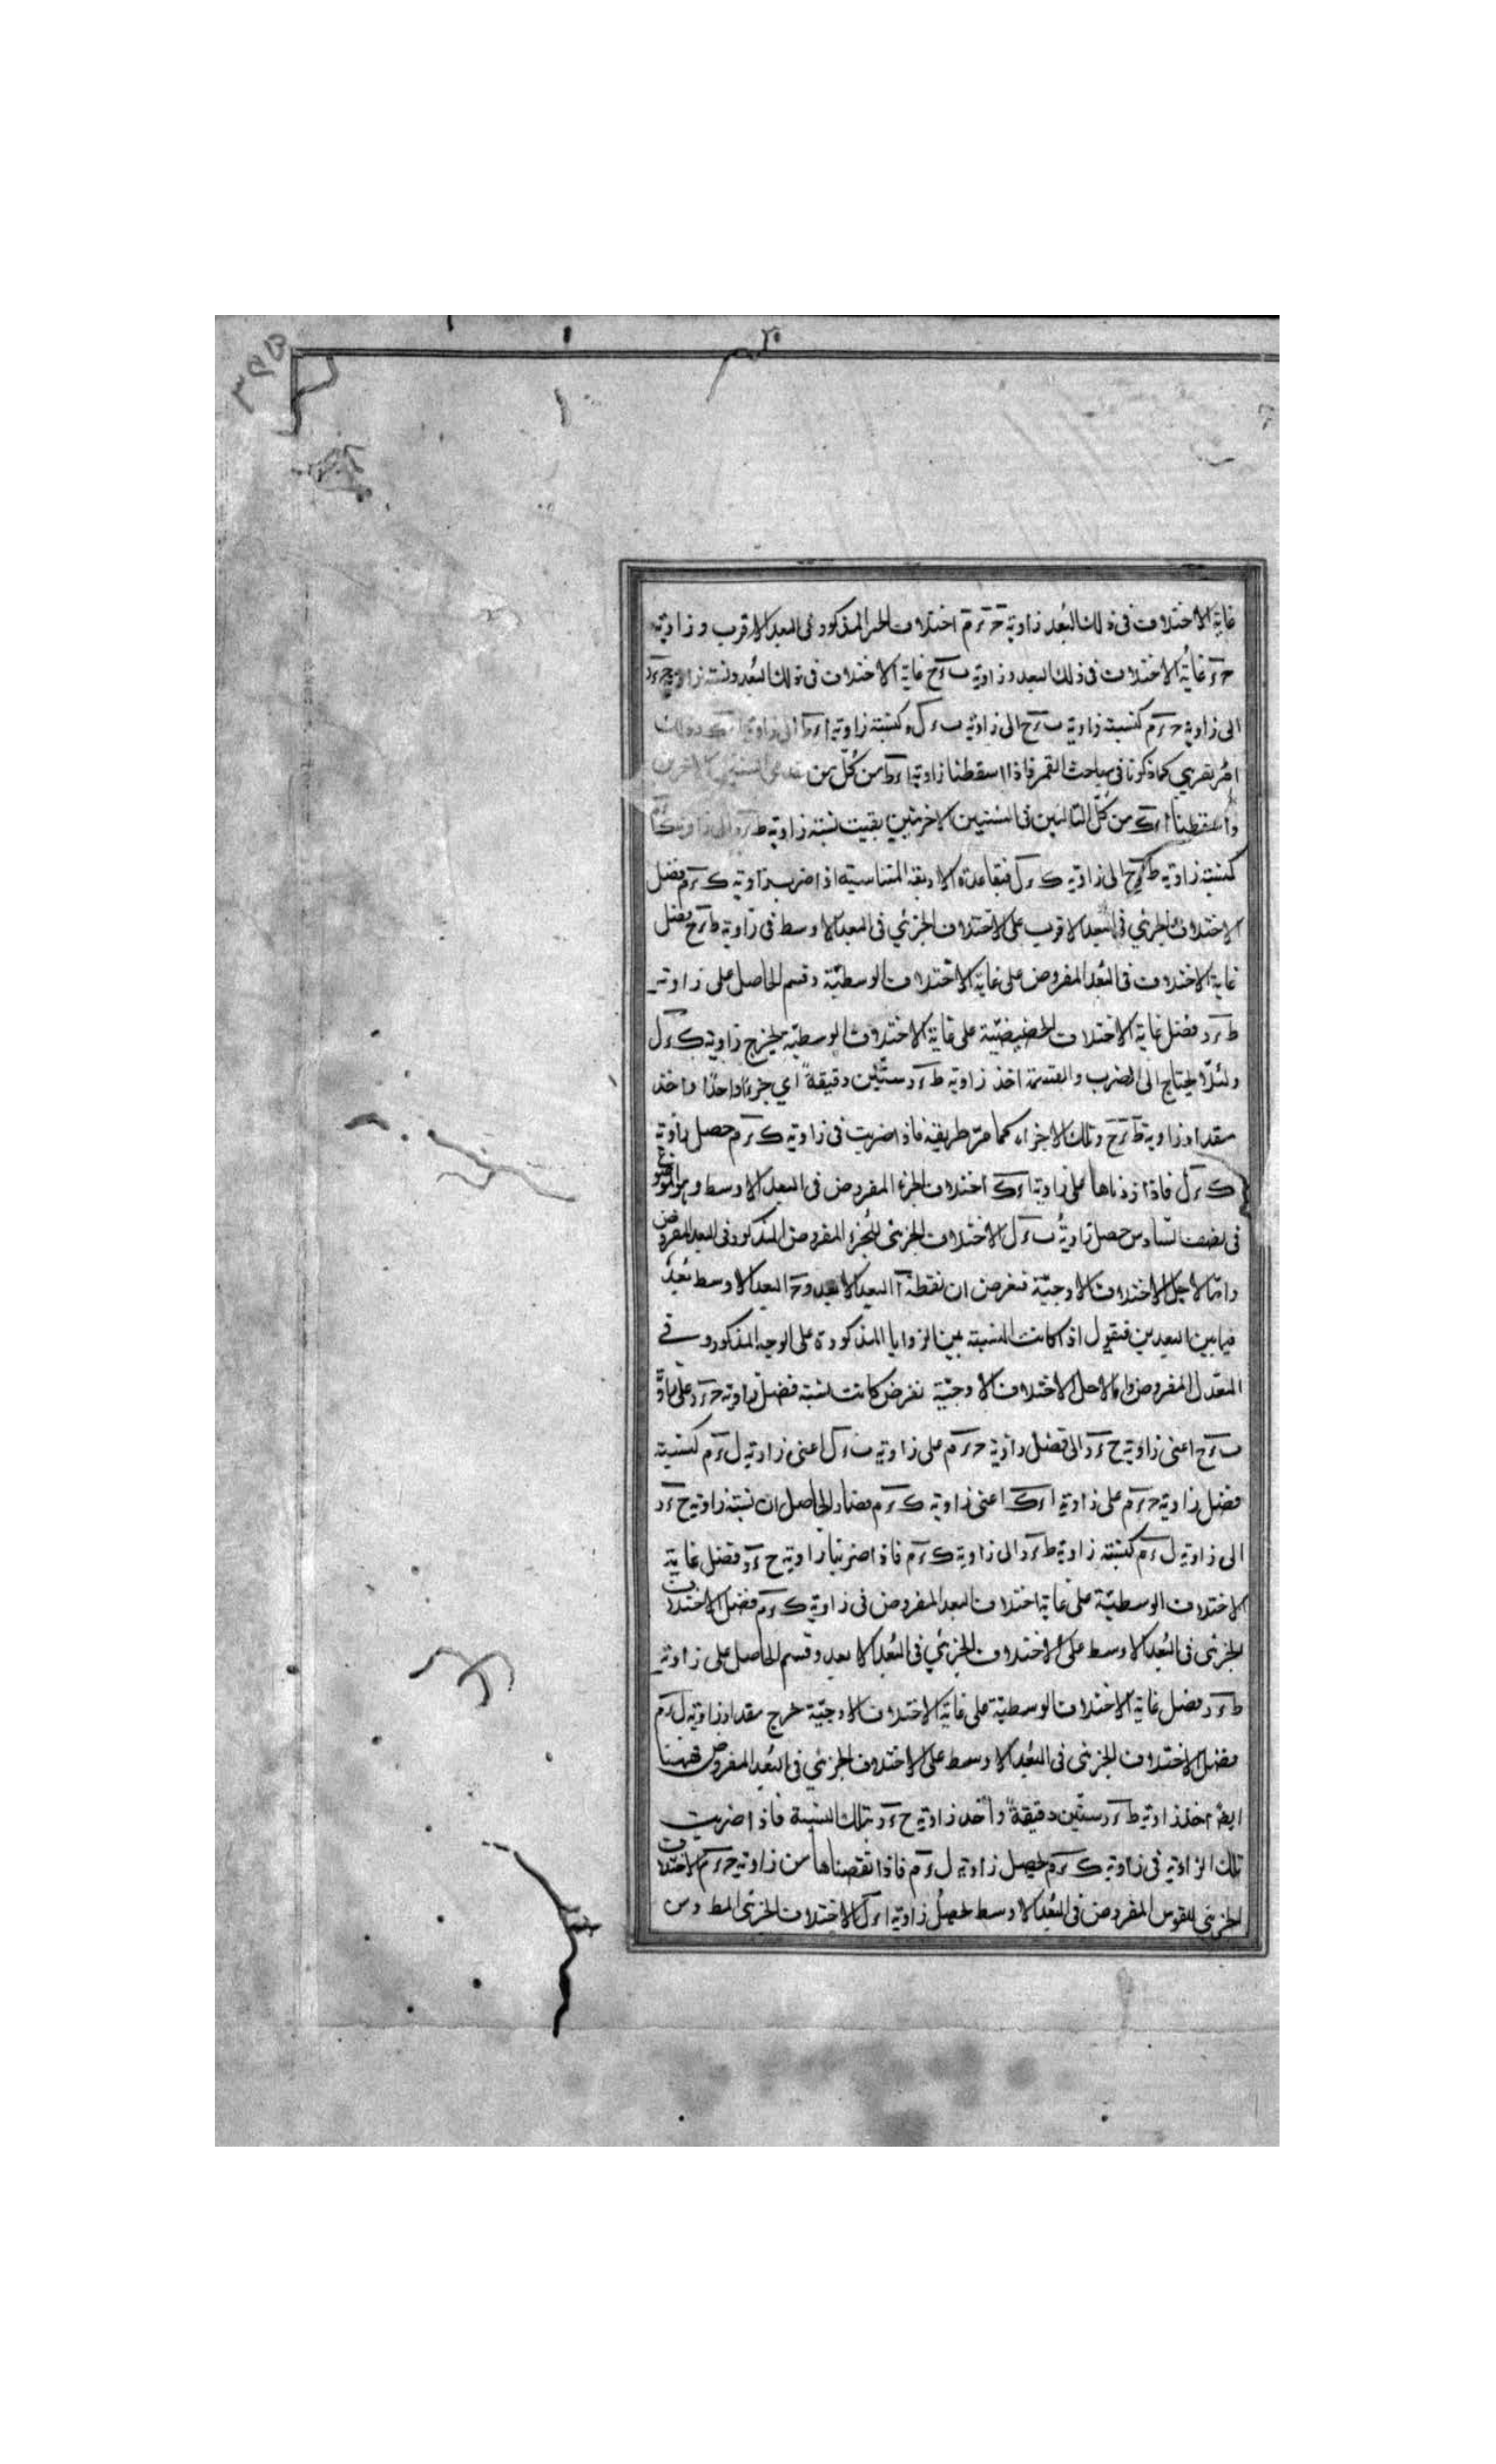 غاية الاختلاف فى ذلك البُعد زاوية حَ ءَ مَ اختلاف الجزء المذكور فى البعد الاقرب و زاوية
حَ ءَ غاية الاختلاف فى ذلك البعد و زاوية ب ءَ ح غاية الاختلاف فى ذلك البُعد و نسبة زاوية ح ءَ د
الى زاوية ح ءَ م كنسبة زاوية ب ءَ ح الى زاوية ب ءَ ل و كنسبة زاوية ا ءَ ط الى زاوية ا ءَ ك و ذلك
امر تقريبى كما ذكرنا فى مباحث القمر فاذا اسقطنا زاوية ا ءَ ط من كُلّ من
و اسقطنا ا ءَ ك من كُلّ التاليَين فى النسبتين الاخريَين بقيت نسبة زاوية ط ءَ د الى زاوية ك ءَ م
كنسبة زاوية ط ءَ ح الى زاوية ك ءَ ل فبقاعدة الاربعة المتناسبة اذا ضرب زاوية ك ءَ م فضل
الاختلاف الجزئي فى البعد الاقرب على الاختلاف الجزئي فى البعد الاوسط فى زاوية ط ءَ ح فضل
غاية الاختلاف فى البُعد المفروض على غاية الاختلاف الوسطيّة و قسم الحاصل على زاوية
ط ءَ د فضل غاية الاختلاف الحضيضيّة على غاية الاختلاف الوسطيّة يخرج زاوية ك ءَ ل
و لئلّا يحتاج الى الضرب والقسمة اخذ زاوية ط ءَ د ستّين دقيقةً اي جزءًا واحدًا و اخذ
مقدار زاوية ط ءَ ح و تلك الاجزاء كما مرّ طريقه فاذا ضربت فى زاوية ك ءَ م حصل زاوية
ك ءَ ل فاذا زدناها على زاوية ا ءَ ك اختلاف الجزء المفروض فى البعد الاوسط و هو الموضوع
فى نصف السّادس حصل زاويةُ ب ءَ ل الاختلاف الجزئى للجُزء المفروض المذكور فى البعد المفروض
و امّا لاجل الاختلاف الاوجيّة فنفرض ان نقطة آ البعد الابعد و حَ البعد الاوسط بُعدٌ
فيما بين البعدين فنقول اذا كانت النسبة بين الزوايا المذكورة على الوجه المذكور و فى
التعديل المفروض و اما لاجل الاختلاف الاوجيّة نفرض كانت نسبة فضل زاوية ح ءَ د على زاوية
ب ءَ ح اعنى زاوية ح ءَ د الى فضل زاوية ح ءَ م على زاوية ب ءَ ل اعنى زاوية ل ءَ م كنسبة
فضل زاوية ح ءَ م على زاوية ا ءَ ك اعنى زاوية ك ءَ م فصار الحاصل ان نسبة زاوية ح ءَ د
الى زاوية ل ءَ م كنسبة زاوية ط ءَ د الى زاوية ك ءَ م فاذا ضربنا زاوية ح ءَ د فضل غاية
الاختلاف الوسطيّة على غاية اختلاف البعد المفروض فى زاوية ك ءَ م فضل الاختلاف
الجزئى فى البُعد الاوسط على الاختلاف الجزئي فى البُعد الابعد و قسم الحاصل على زاوية
ط ءَ د فضل غاية الاختلاف الوسطيّة على غاية الاختلاف الاوجيّة خرج مقدار زاوية ل ءَ م
فضل الاختلاف الجزئى فى البُعد الاوسط على الاختلاف الجزئي فى البُعد المفروض فههنا
ايضًا اخذ زاوية ط ءَ د ستّين دقيقةً و اخذ زاوية ح ءَ د بتلك النسبة فاذا ضربت
تلك الزاوية فى زاوية ك ءَ م يحصل زاوية ل ءَ م فاذا نقصناها من زاوية ح ءَ م الاختلاف
الجزئى للقوس المفروض فى البُعد الاوسط يحصُل زاوية ا ءَ ل الاختلاف الجزئى المط و من